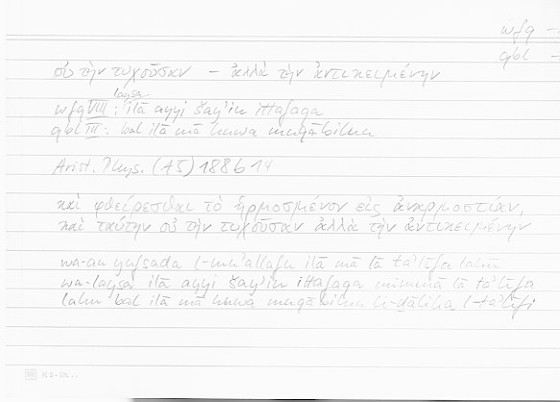 wfq –
qbl –
οὐ τὴν τυχοῦσαν – ἀλλὰ τὴν ἀντικειμένην
laysa
wfq VIII: ilā ayyi šay'in ittafaqa
qbl III: bal ilā mā huwa muqābiluhu
Arist. Phys. (A5) 188b14
καὶ φθείρεσθαι τὸ ἡρμοσμένον εἰς ἀναρμοστίαν,
καὶ ταύτην οὐ τὴν τυχοῦσαν ἀλλὰ τὴν ἀντικειμένην
wa-an yufsada l-mu'allafu ilā mā lā ta'līfa lahū
wa-laysa ilā ayyi šay'in ittafaqa mimmā lā ta'līfa
lahu bal ilā mā huwa muqābilun li-ḏālika l-ta'līfi